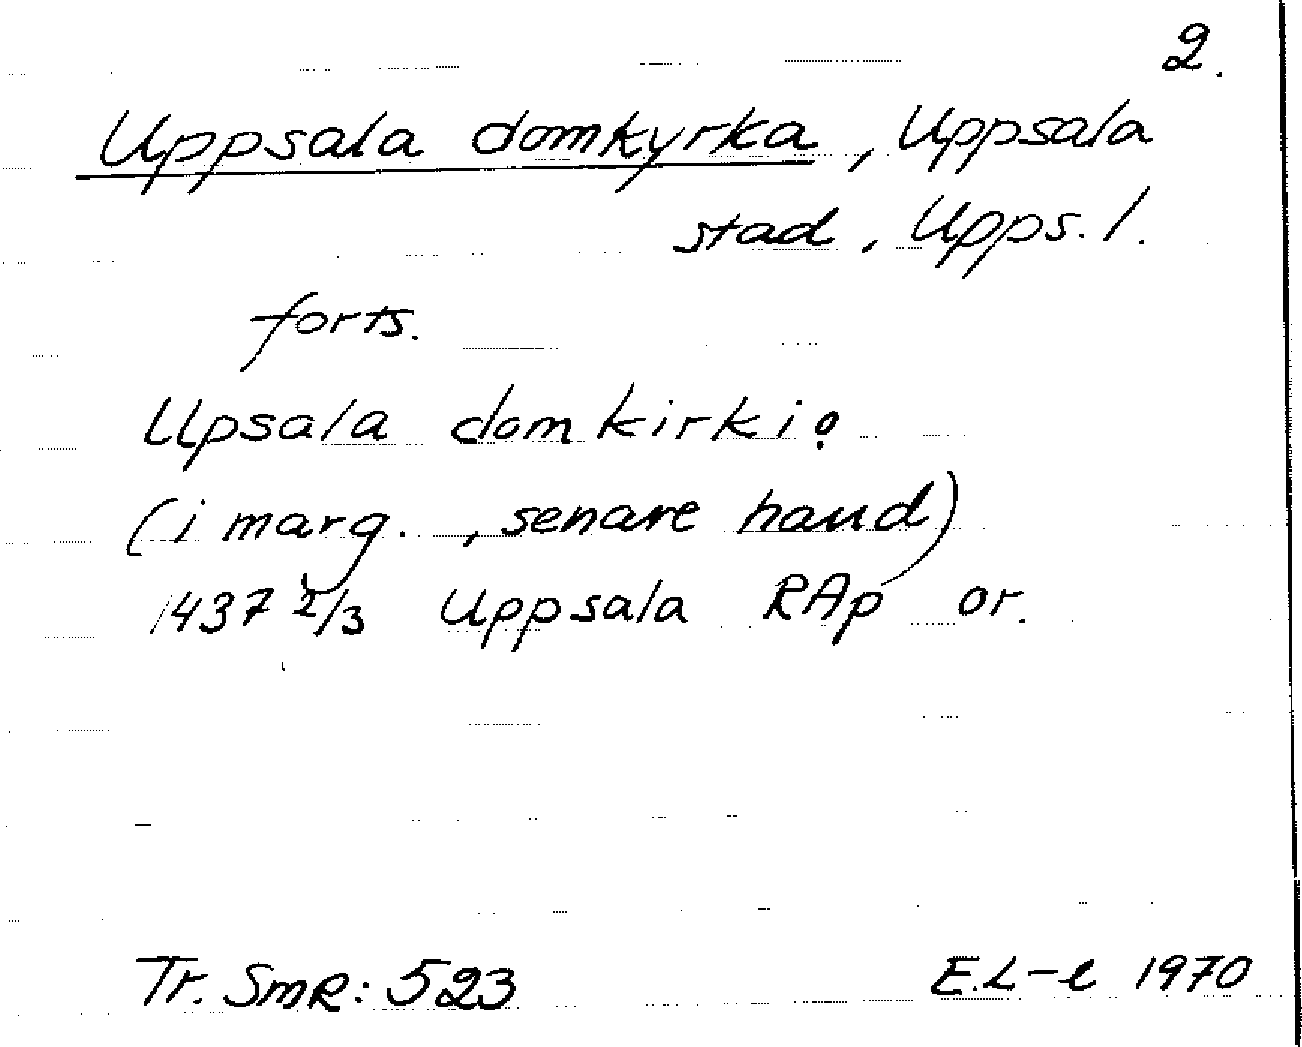 2.
Uppsala domkyrka, Uppsala
stad, Upps. l.
forts.
Upsala domkirkio
(i marg., senare hand)
1437 2/3 Uppsala RAp or.
Tr. SmR: 523 E.L-e 1970